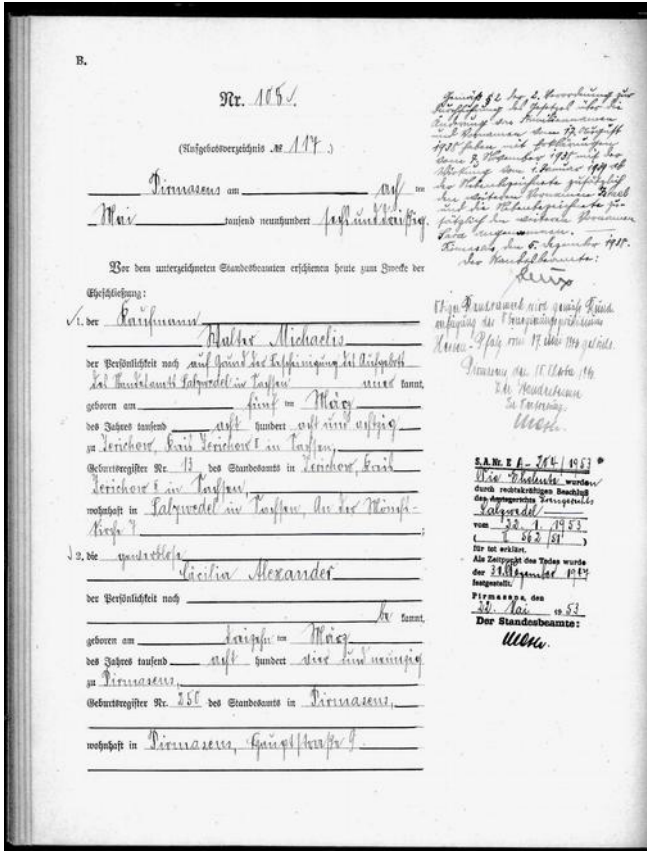 B.
Nr. 105.
(Aufgebotsverzeichnis № 117.)
Pirmasens am ten
Mai tausend neunhundert sechsunddreißig.
Vor dem unterzeichneten Standesbeamten erschienen heute zum Zwecke der
Eheschließung:
1. der Kaufmann
Walter Michaelis
der Persönlichkeit nach auf Grund der Bescheinigung des Aufgebots
des Standesamts Salzwedel in Sachsen aner kannt,
geboren am fünf ten März
des Jahres tausend acht hundert acht und achtzig
zu Jerichow, Kreis Jerichow II in Sachsen,
Geburtsregister Nr. 13 des Standesamts in Jerichow, Kreis
Jerichow II in Sachsen,
wohnhaft in Salzwedel in Sachsen, An der Mönchs-
kirche 7
;
2. die gewerblose
Cäcilia Alexander
der Persönlichkeit nach
be kannt,
geboren am dreizehn ten März
des Jahres tausend acht hundert vier und neunzig
zu Pirmasens,
Geburtsregister Nr. 250 des Standesamts in Pirmasens,
wohnhaft in Pirmasens, Hauptstraße 9.
Gemäß § 2 der 2. Verordnung zur
Durchführung des Gesetzes über die
Änderung von Familiennamen
und Vornamen vom 17. August
1938 haben mit Erklärungen
vom 7. November 1938 mit
Wirkung vom 1. Januar 1939 ab
der Nebenbezeichnete zusätzlich
den weiteren Vornamen Israel
und die Nebenbezeichnete zu-
sätzlich den weiteren Vornamen
Sara angenommen.
Pirmasens, den 5. Dezember 1938.
Der Standesbeamte:
Obiger Randvermerk wird gemäß
Hessen-Pfalz vom
Pirmasens, den
Der Standesbeamte
In Vertretung:
S.A.Nr. E A-254/1953
Die Eheleute wurden
durch rechtskräftigen Beschluß
des
Salzwedel
vom 22. 1. 1953
( II 562/51 )
für tot erklärt.
Als Zeitpunkt des Todes wurde
der 31. Dezember
festgestellt.
Pirmasens, den
22. Mai 1953
Der Standesbeamte: